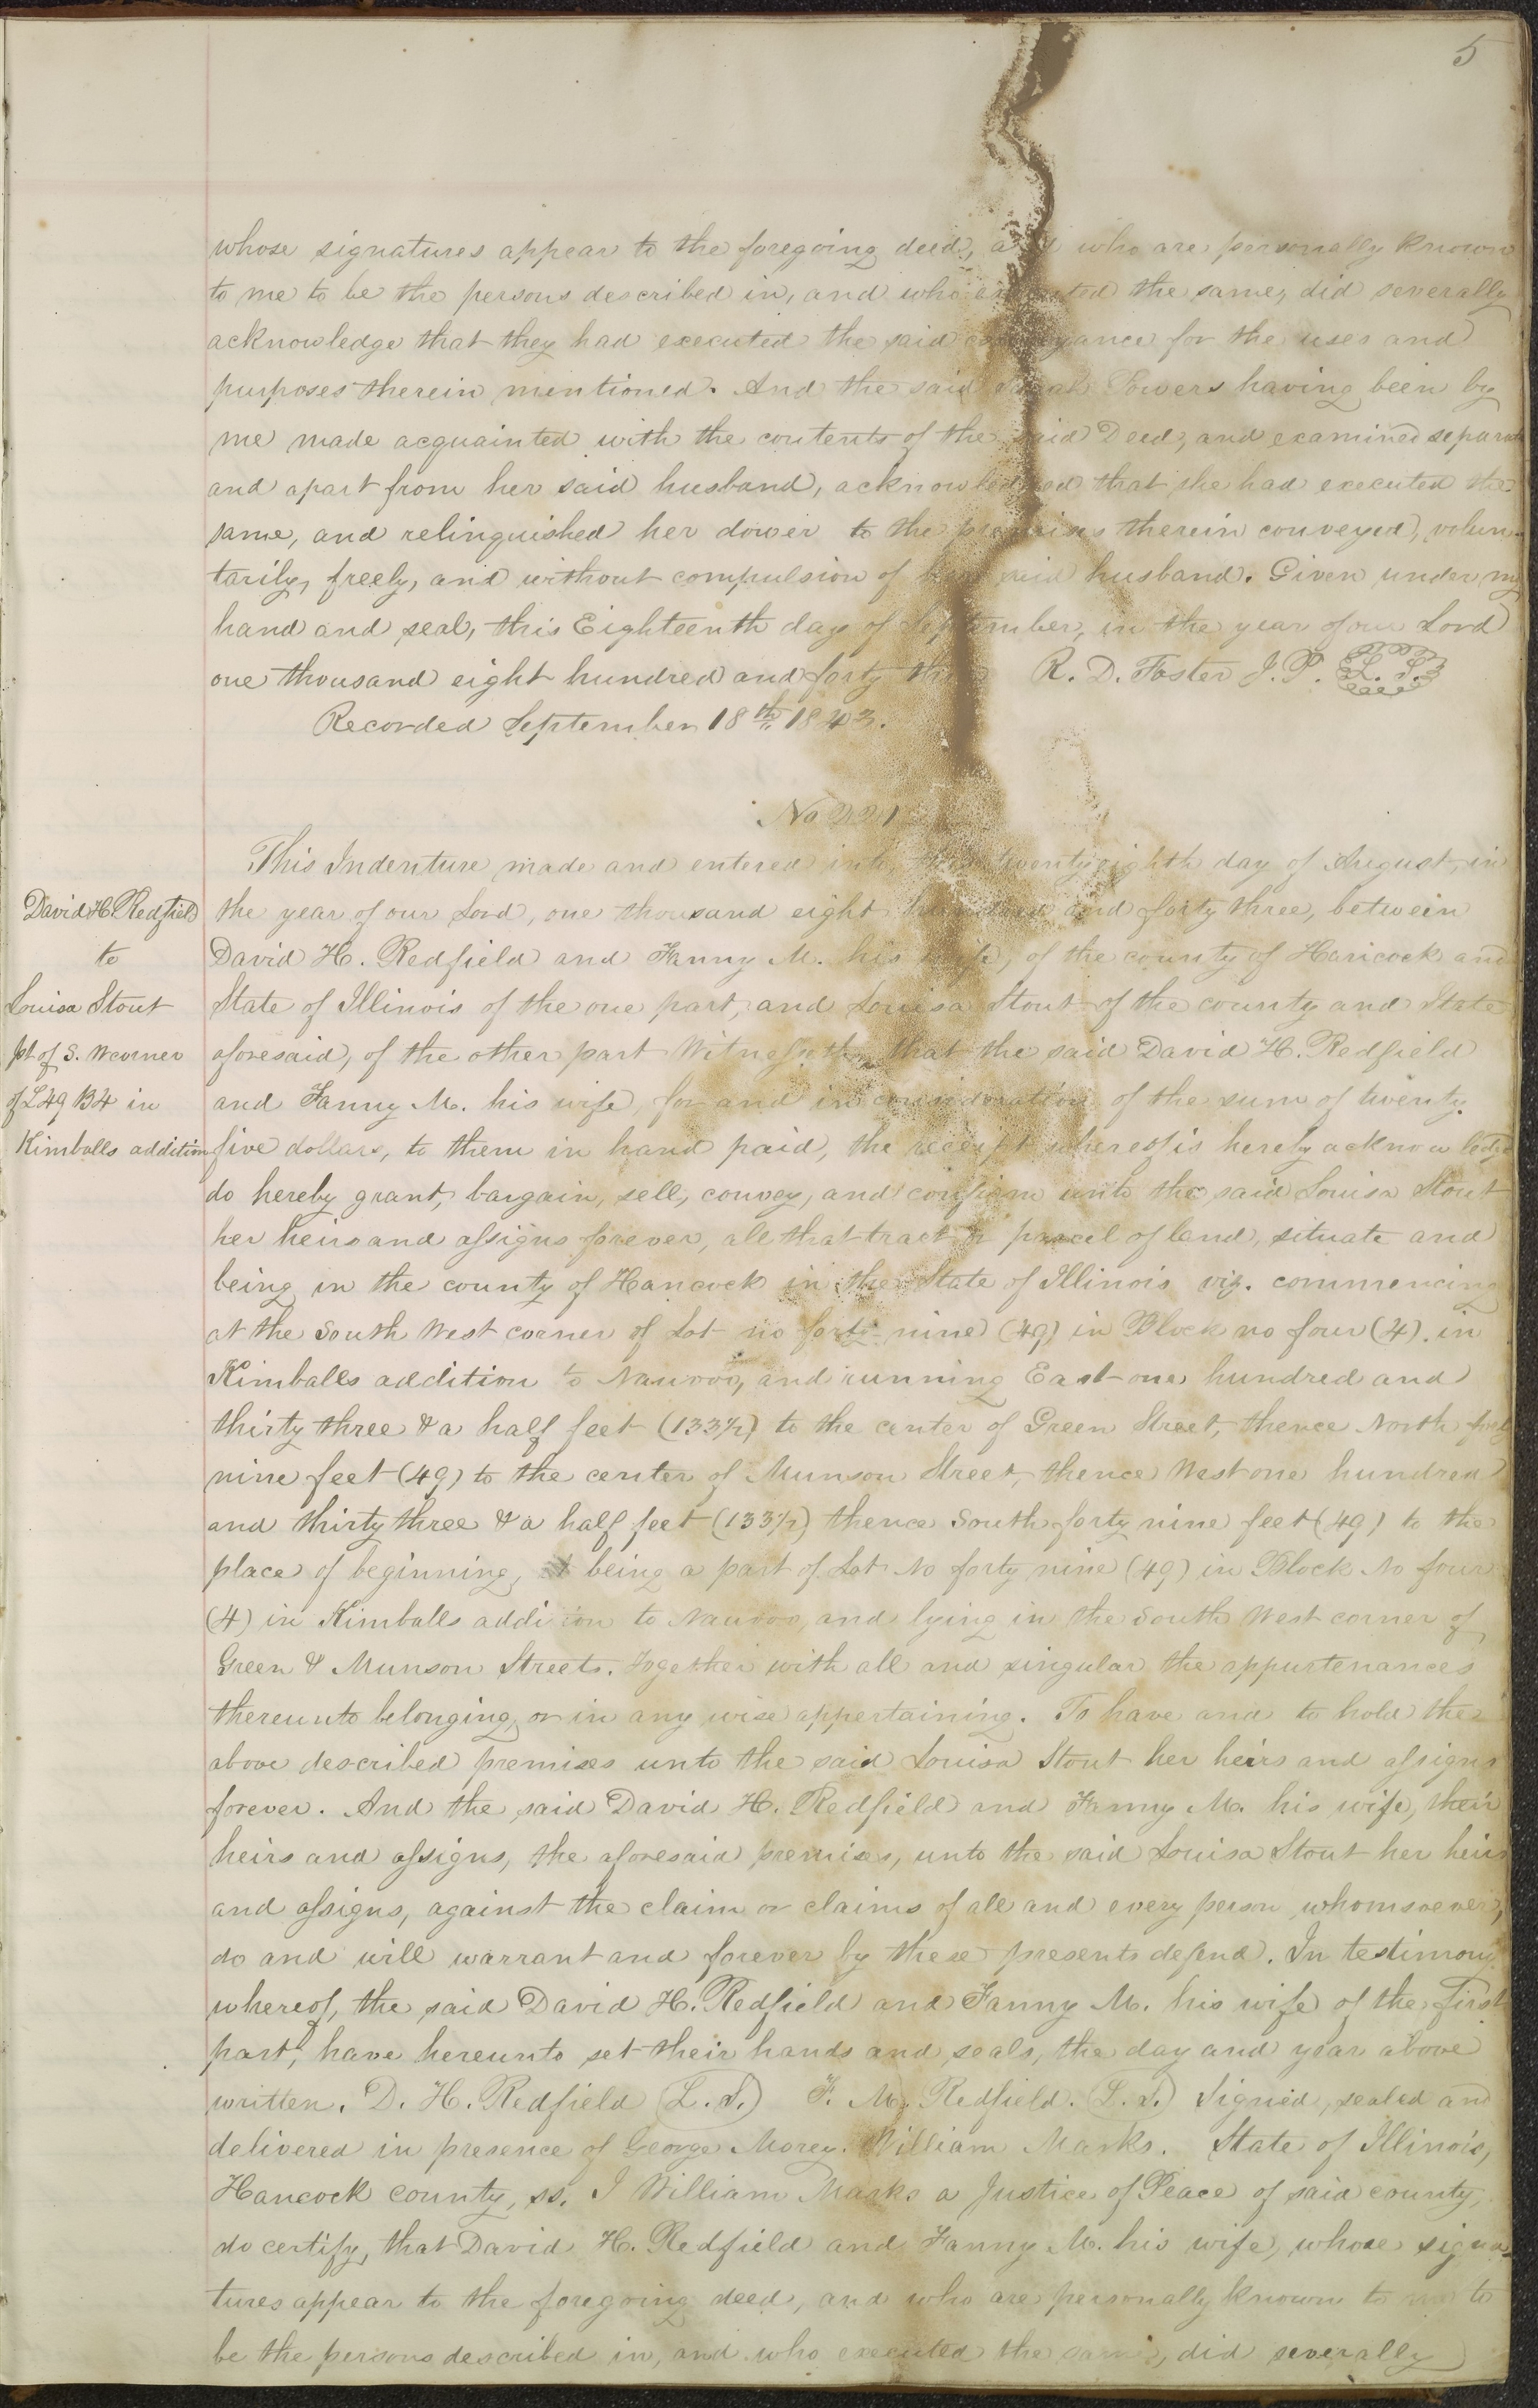 5
whose signatures appear to the foregoing deed, and who are personally known
to me to be the persons described in, and who executed the same, did severally
acknowledge that they had executed the said conveyance for the uses and
purposes therein mentioned. And the said Sarah Powers having been by
me made acquainted with the contents of the said Deed, and examined separate
and apart from her said husband, acknowledged that she had executed the
same, and relinquished her dower to the premises therein conveyed, volun-
tarily, freely, and without compulsion of her said husband. Given under my
hand and seal, this Eighteenth day of September, in the year of our Lord
one thousand eight hundred and forty three R. D. Foster J. P. L. S.
Recorded September 18th 1843.
No 221
This Indenture made and entered into this twenty eighth day of August, in
the year of our Lord, one thousand eight hundred and forty three, between
David H. Redfield and Fanny M. his wife, of the county of Hancock and
State of Illinois of the one part, and Louisa Stout of the county and State
aforesaid, of the other part Witnesseth, that the said David H. Redfield
and Fanny M. his wife, for and in consideration of the sum of twenty.
five dollars, to them in hand paid, the receipt whereof is hereby acknowledged
do hereby grant, bargain, sell, convey, and confirm unto the said Louisa Stout
her heirs and assigns forever, all that tract or parcel of land, situate and
being in the county of Hancock in the State of Illinois viz. commencing
at the South West corner of Lot no forty nine (49) in Block no four (4). in
Kimballs addition to Nauvoo, and running East one hundred and
thirty three & a half feet (133½) to the center of Green Street, thence North forty
nine feet (49) to the center of Munson Street, thence West one hundred
and thirty three & a half feet (133½) thence South forty nine feet (49) to the
place of beginning, it being a part of Lot No forty nine (49) in Block No four
(4) in Kimballs addition to Nauvoo, and lying in the South West corner of
Green & Munson Streets. Together with all and singular the appurtenances
thereunto belonging, or in any wise appertaining. To have and to hold the
above described premises unto the said Louisa Stout her heirs and assigns
forever. And the said David H. Redfield and Fanny M. his wife, their
heirs and assigns, the aforesaid premises, unto the said Louisa Stout her heirs
and assigns, against the claim or claims of all and every person whomsoever,
do and will warrant and forever by these presents defend. In testimony
whereof, the said David H. Redfield and Fanny M. his wife of the first
part, have hereunto set their hands and seals, the day and year above
written. D. H. Redfield (L.S.) F. M. Redfield. (L.S.) Signed, sealed and
delivered in presence of George Morey. William Marks. State of Illinois,
Hancock county, ss. I William Marks a Justice of Peace of said county,
do certify, that David H. Redfield and Fanny M. his wife, whose signa-
tures appear to the foregoing deed, and who are personally known to me to
be the persons described in, and who executed the same, did severally
David H. Redfield
to
Louisa Stout
pt of S. W corner
of L 49 B4 in
Kimballs addition